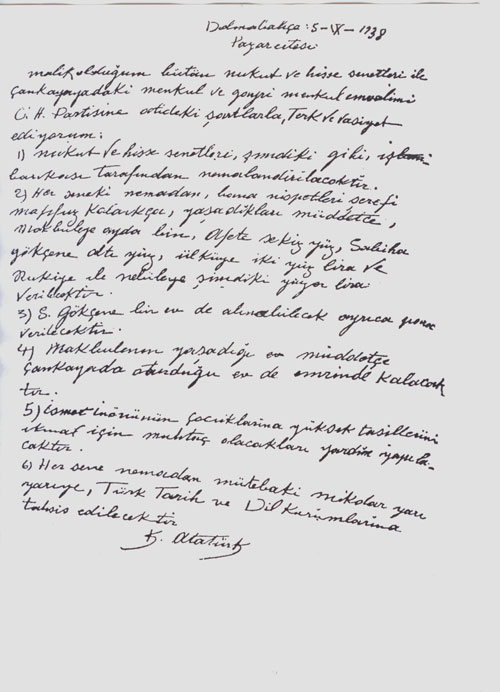 Dolmabahçe: 5-IX-1938
Pazarertesi
malik olduğum bütün nukut ve hisse senetleri ile
Çankayadaki menkul ve gayri menkul emvalimi
C. H. Partisine atideki şartlarla, Terk ve vasiyet
ediyorum:
1) Nukut ve hisse senetleri, şimdiki gibi, iş
bankası tarafından nemalandırılacaktır.
2) Her seneki nemadan, bana nispetleri şerefi
mahfuz kaldıkça, yaşadıkları müddetce,
Makbuleye ayda bin, Afete sekiz yüz, Sabiha
gökçene altı yüz, ülküye iki yüz lira ve
Rukiye ile nebileye şimdiki yüzer lira
verilecektir.
3) S. Gökçene bir ev de alınabilecek ayrıca para
verilecektir.
4) Makbulenin yaşadığı müddetçe
Çankayada oturduğu ev de emrinde kalacak
tır.
5) ismet inönünün çocuklarına yüksek tahsillerini
ikmal için muhtaç olacakları yardım yapıla-
caktır.
6) Her sene nemadan mütebaki mikdar yarı
yarıya, Türk Tarih ve Dil Kurumlarına
tahsis edilecektir
K. Atatürk